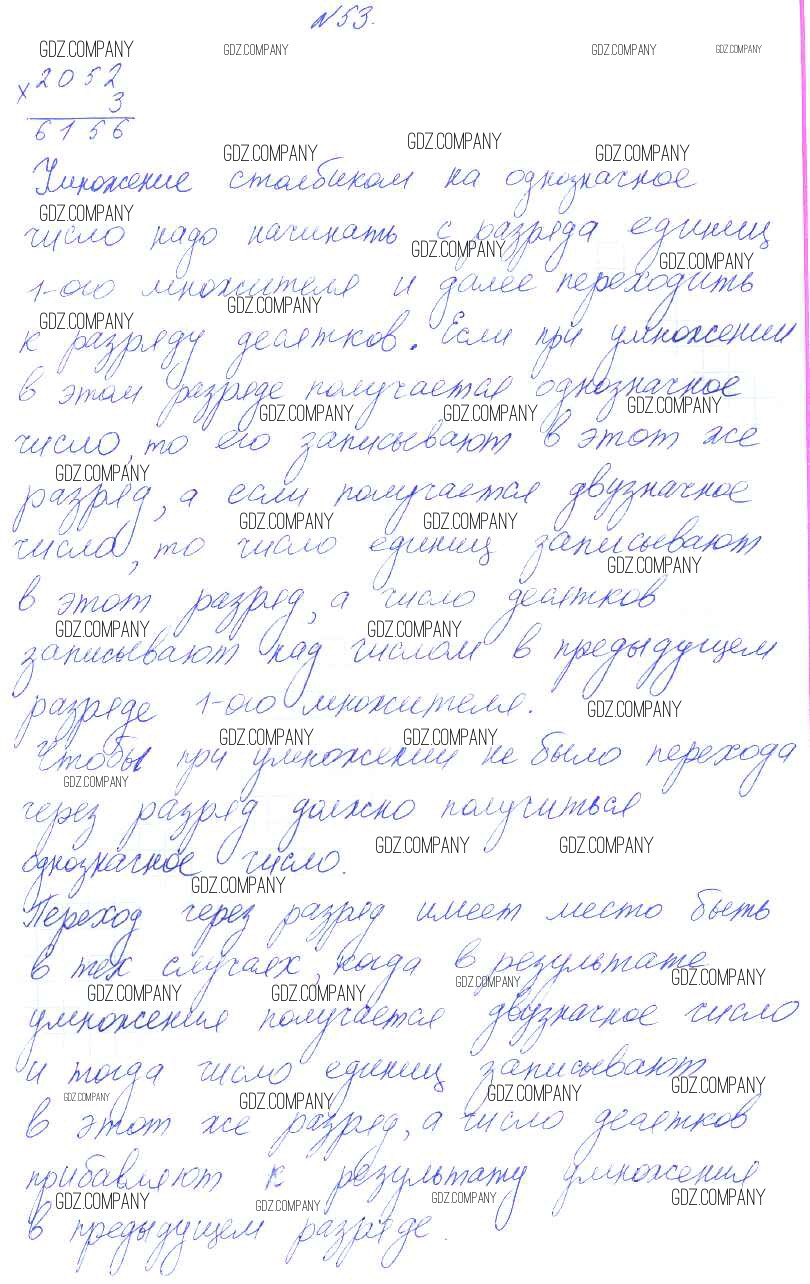 №53.
GDZ.COMPANY GDZ.COMPANY GDZ.COMPANY GDZ.COMPANY
× 2052
3
6156
GDZ.COMPANY GDZ.COMPANY GDZ.COMPANY
Умножение столбиком на однозначное
GDZ.COMPANY
число надо начинать с разряда единиц
GDZ.COMPANY GDZ.COMPANY
1-ого множителя и далее переходить
GDZ.COMPANY GDZ.COMPANY
к разряду десятков. Если при умножении
в этом разряде получается однозначное
GDZ.COMPANY GDZ.COMPANY GDZ.COMPANY
число, то его записывают в этот же
GDZ.COMPANY
разряд, а если получается двузначное
GDZ.COMPANY GDZ.COMPANY
число, то число единиц записывают
GDZ.COMPANY
в этот разряд, а число десятков
GDZ.COMPANY GDZ.COMPANY
записывают над числом в предыдущем
разряде 1-ого множителя.
GDZ.COMPANY
GDZ.COMPANY GDZ.COMPANY
Чтобы при умножении не было перехода
GDZ.COMPANY
через разряд должно получиться
GDZ.COMPANY GDZ.COMPANY
однозначное число.
GDZ.COMPANY
Переход через разряд имеет место быть
в тех случаях, когда в результате
GDZ.COMPANY GDZ.COMPANY GDZ.COMPANY GDZ.COMPANY
умножения получается двузначное число
и тогда число единиц записывают
GDZ.COMPANY GDZ.COMPANY GDZ.COMPANY GDZ.COMPANY
в этот же разряд, а число десятков
прибавляют к результату умножения
GDZ.COMPANY GDZ.COMPANY GDZ.COMPANY GDZ.COMPANY
в предыдущем разряде.